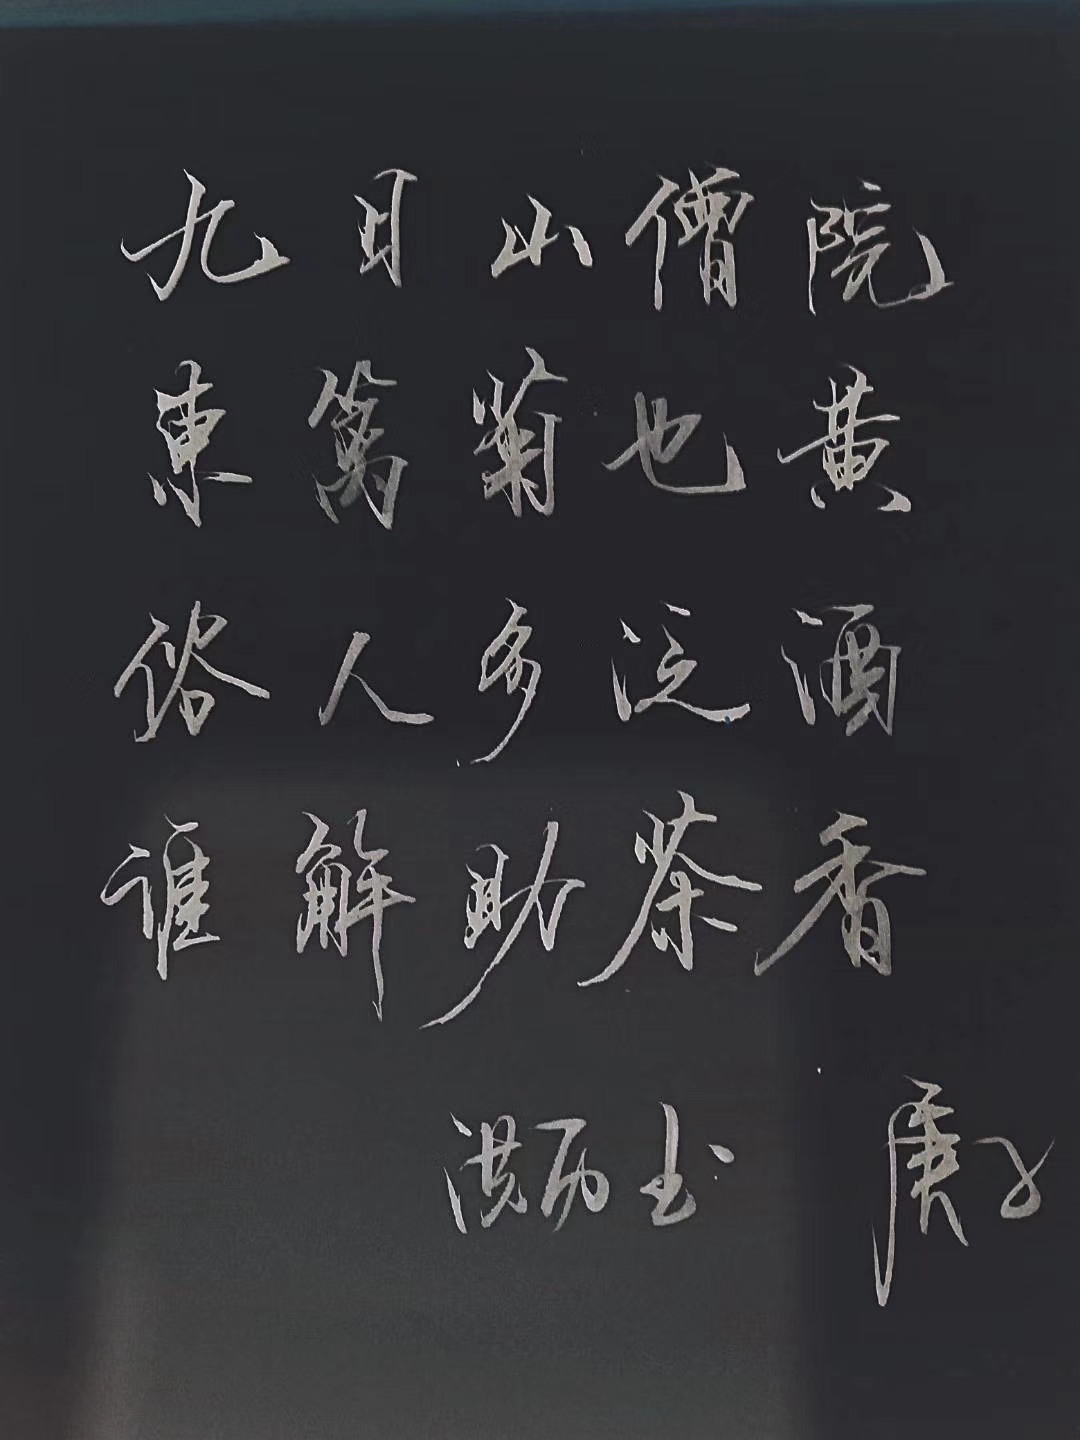 九日山僧院
東篱菊也黄
俗人多泛酒
谁解助茶香
洪历书 庚子